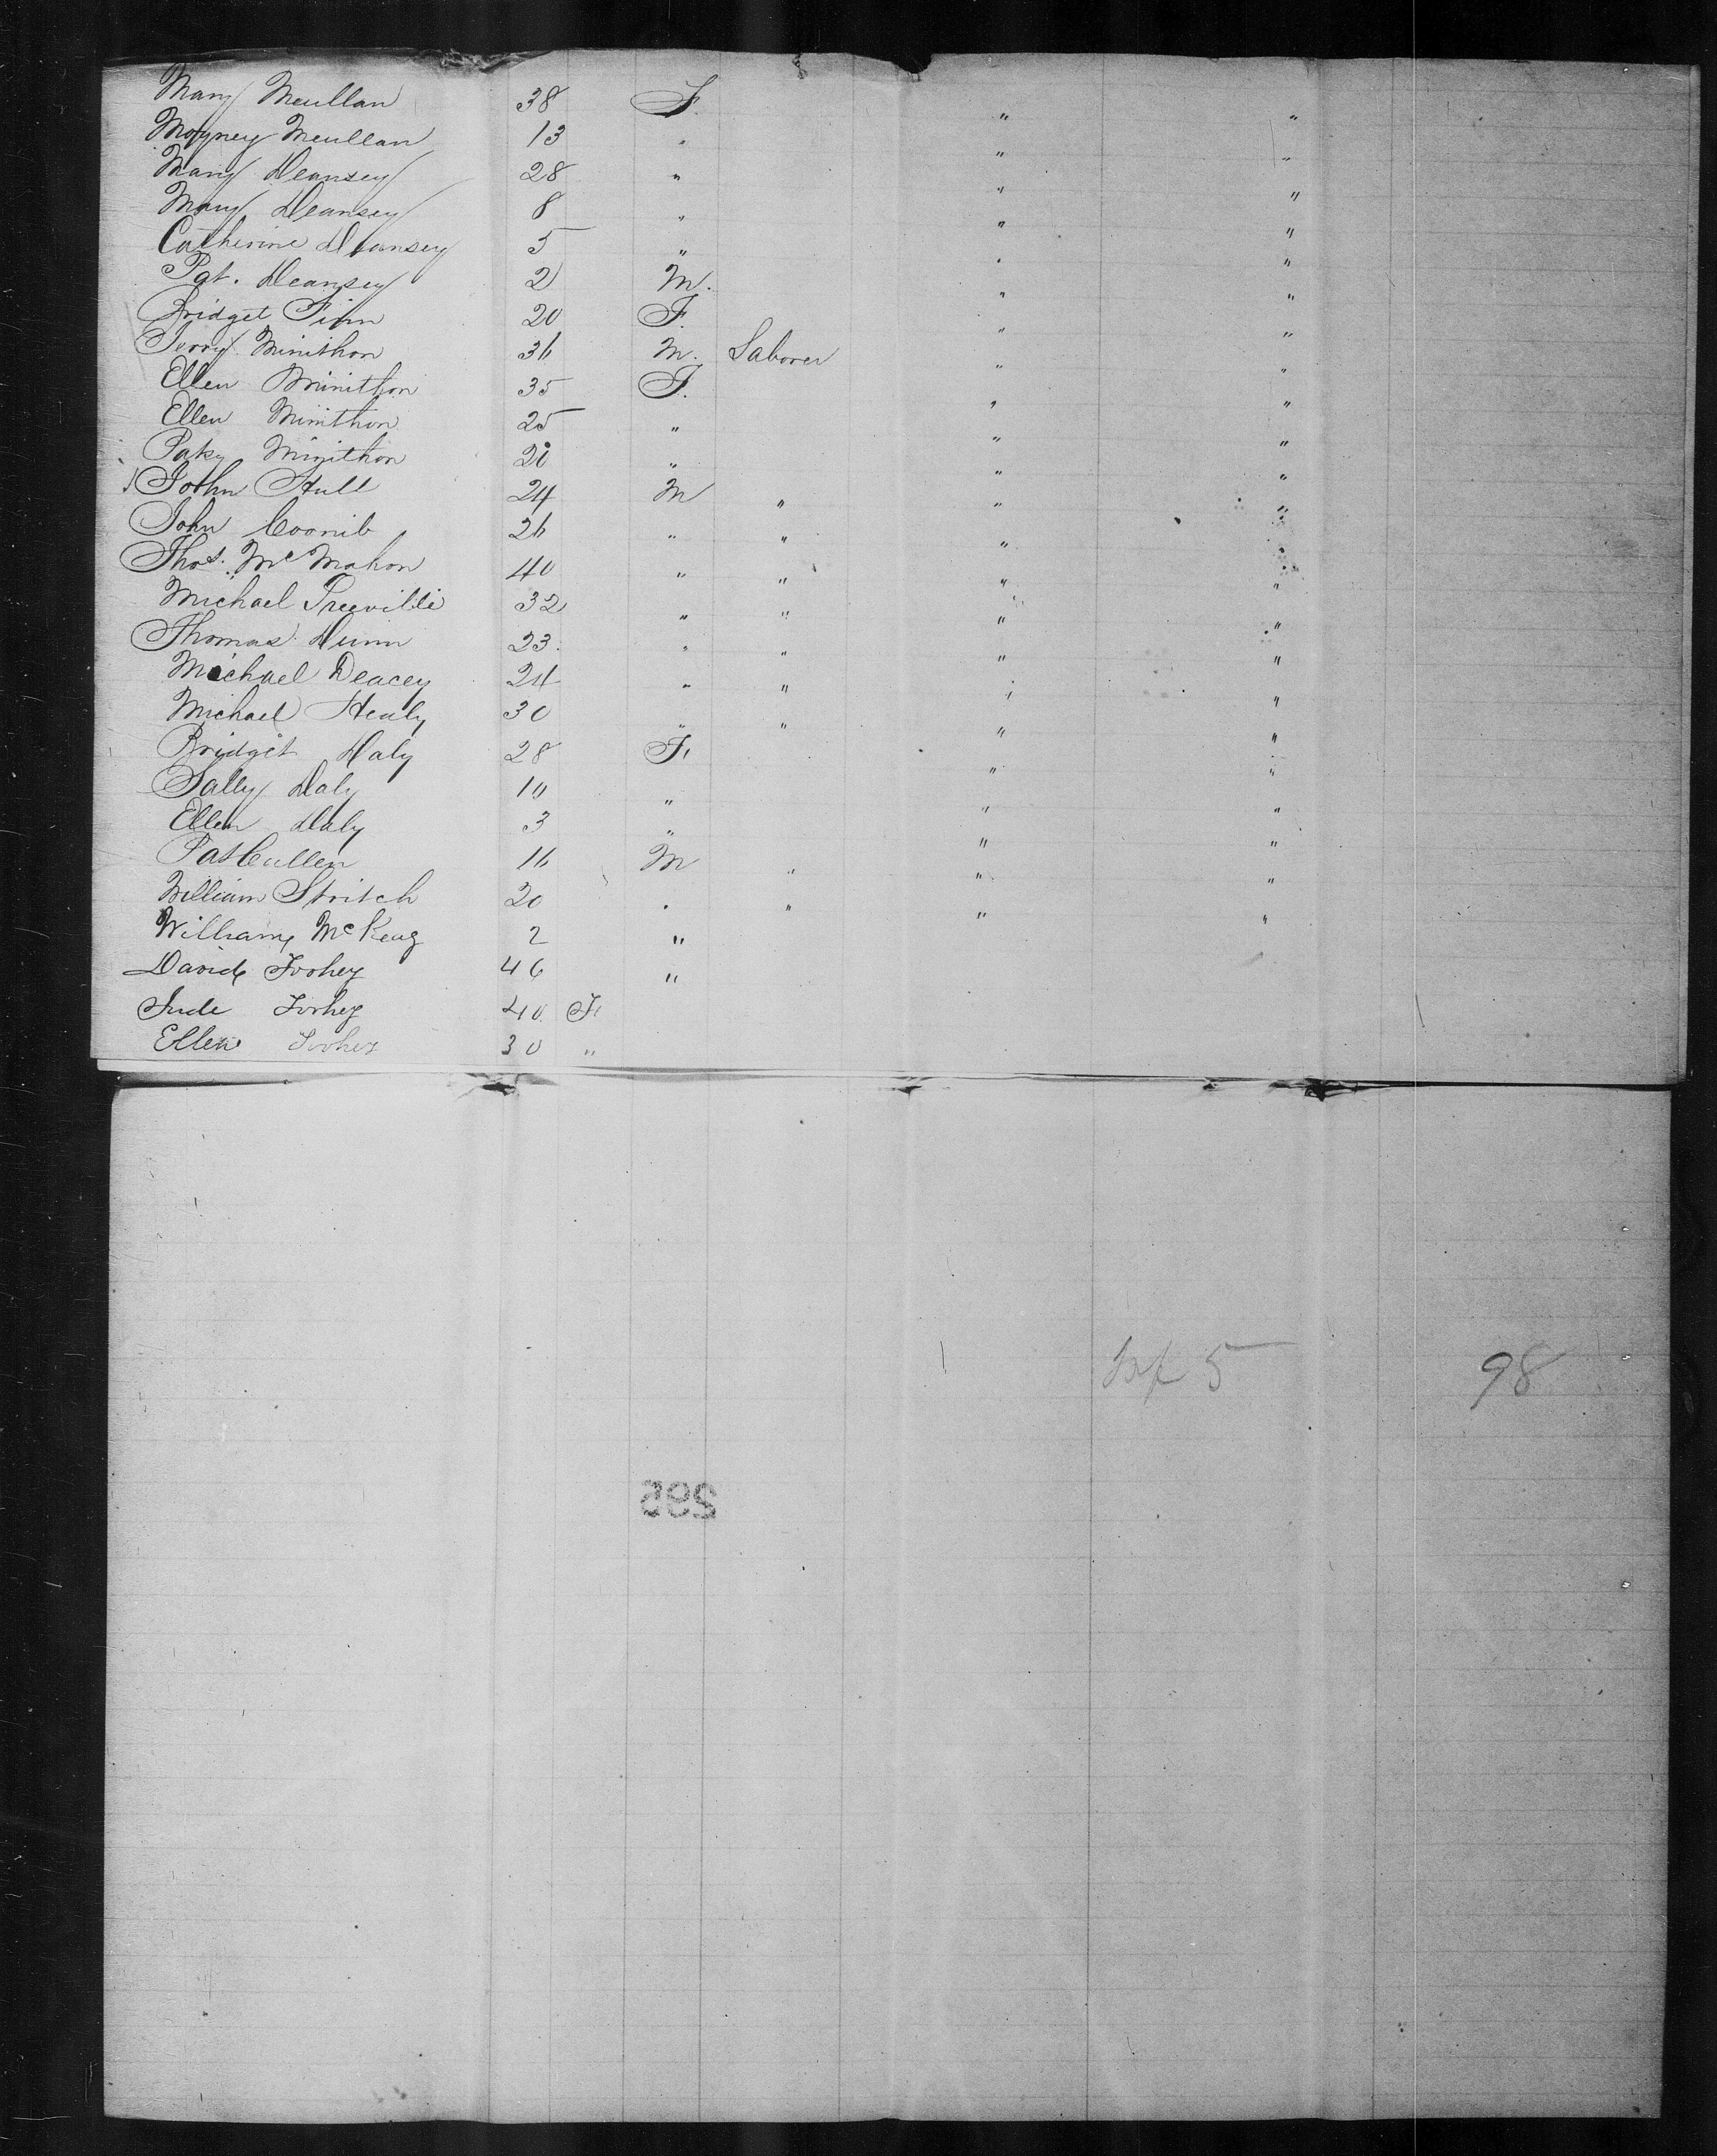 Mary Mcullan 38 F. " "
Mcullan 13 " " "
Mary Deansey 28 " " "
Mary Deansey 8 " " "
Catherine Deansey 5 " " "
Pat. Deansey 2 M. " "
Bridget Finn 20 F. " "
Terry Minithon 36 M. Laborer " "
Ellen Minithon 35 F. " "
Ellen Minithon 25 " " "
Paky Minithon 20 " " "
John Hull 24 M " " "
John Coonib 26 " " " "
Thos. McMahon 40 " " " "
Michael 32 " " " "
Thomas Dunn 23. " " " "
Michael Deacey 24 " " " "
Michael Healy 30 " " " "
Bridget Daly 28 F. " "
Sally Daly 10 " " "
Ellen Daly 3 " " "
Pat Cullen 16 M " " "
William Stritch 20 " " " "
William McKeag 2 "
David Toohey 46 "
Jude Toohey 40. F.
Ellen Toohey 30 "
5 98
295